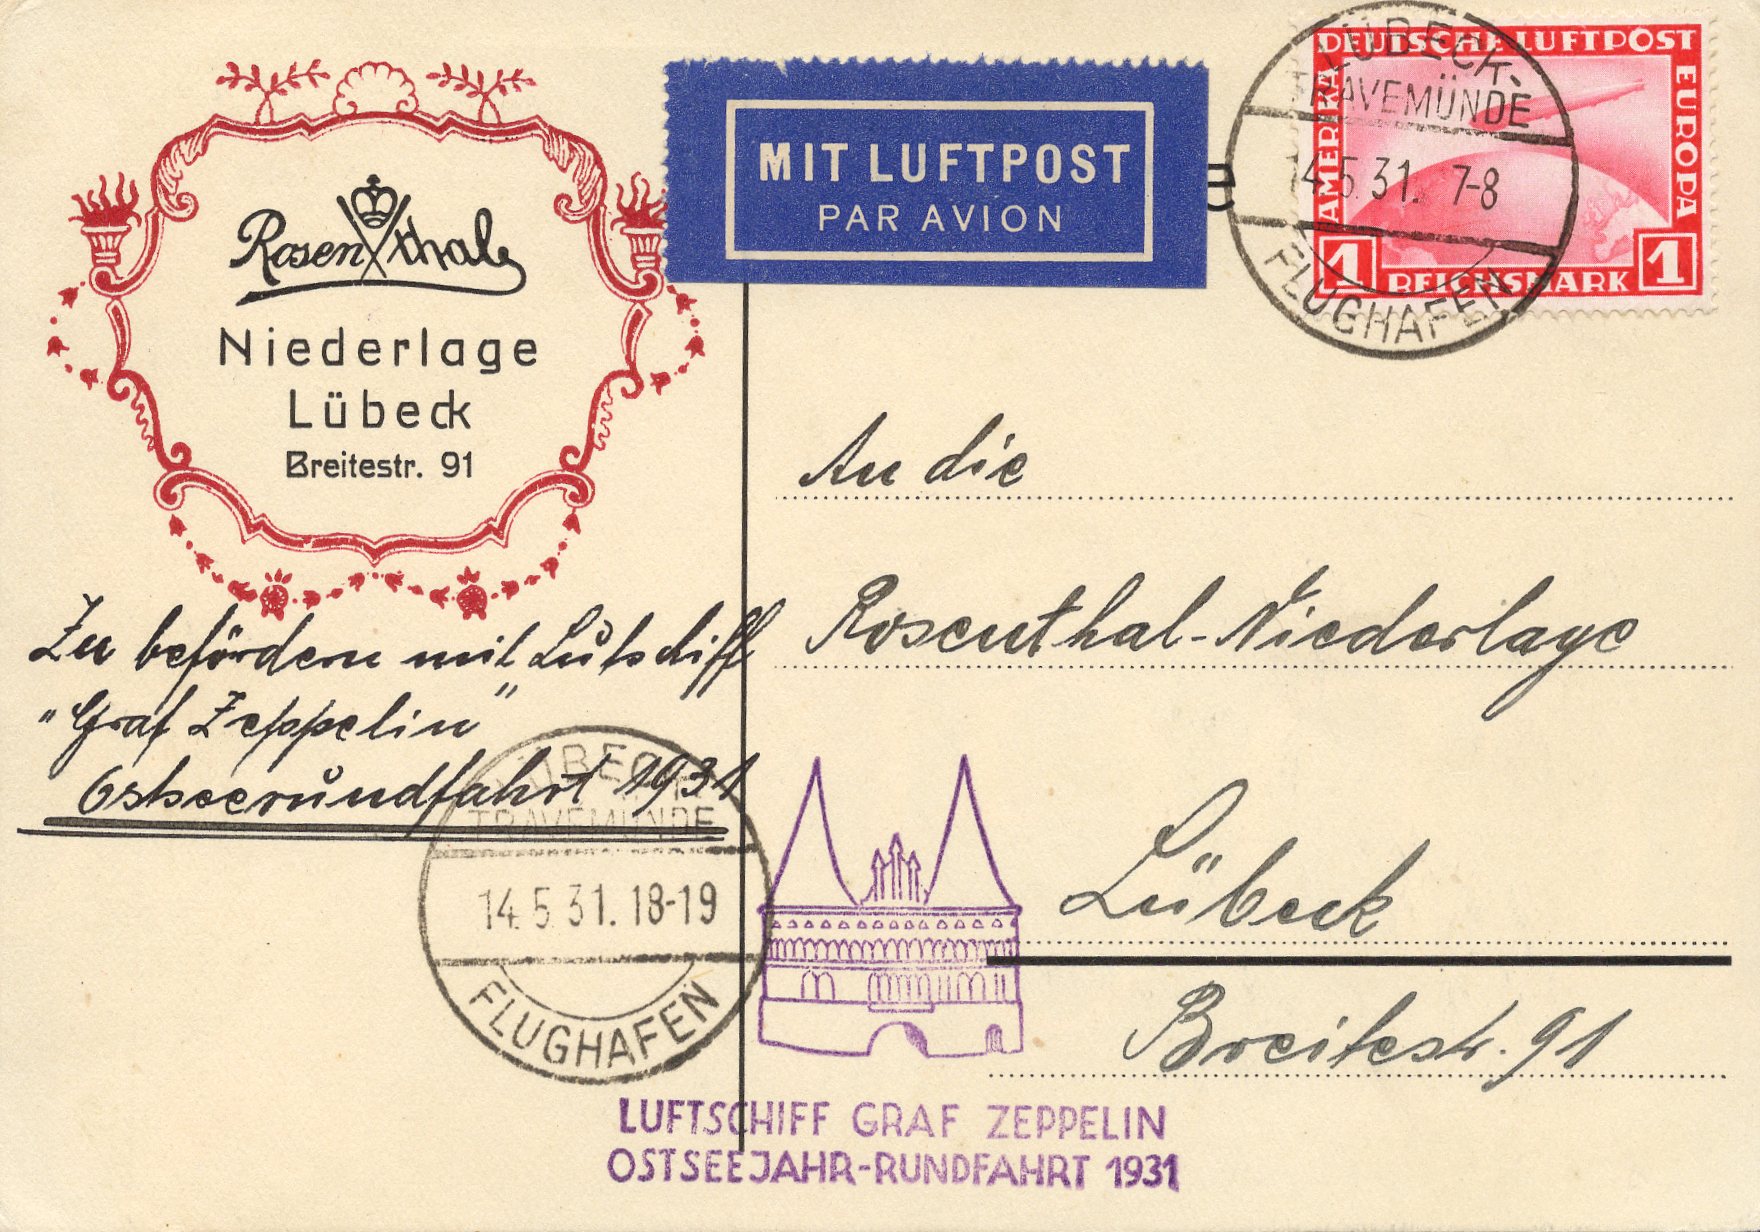 Rosenthal
Niederlage
Lübeck
Breitestr. 91
MIT LUFTPOST
PAR AVION
LÜBECK-
TRAVEMÜNDE
14.5.31. 7-8
FLUGHAFEN
DEUTSCHE LUFTPOST
AMERIKA
EUROPA
1 REICHSMARK 1
An die
Rosenthal-Niederlage
Lübeck
Breitestr. 91
Zu befördern mit Luftschiff
"Graf Zeppelin"
Ostseerundfahrt 1931
LÜBECK-
TRAVEMÜNDE
14.5.31. 18-19
FLUGHAFEN
LUFTSCHIFF GRAF ZEPPELIN
OSTSEEJAHR-RUNDFAHRT 1931